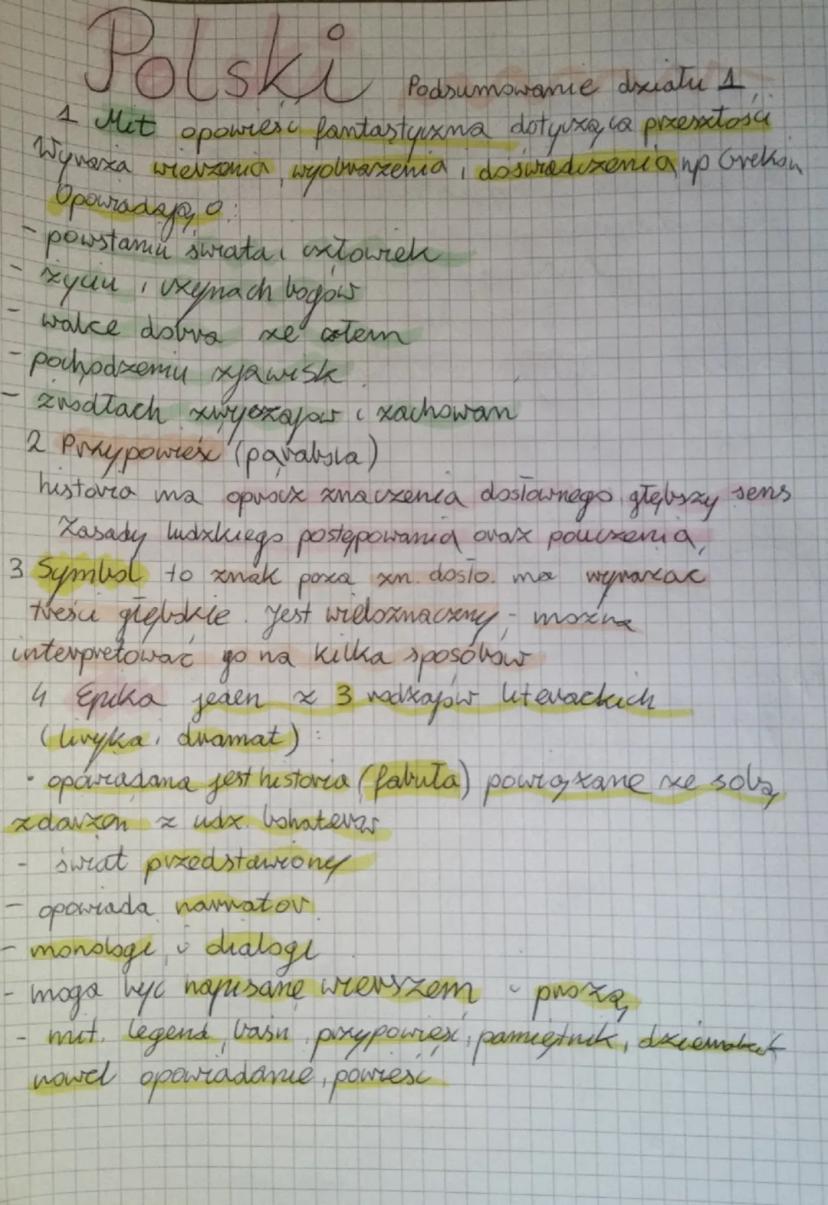 Polski Podsumowanie działu 1
1 Mit opowieść fantastyczna dotycząca przeszłości
Wyraża wierzenia, wyobrażenia i doświadczenia np Greków
Opowiadają o:
- powstaniu świata i człowiek
- życiu i czynach bogów
- walce dobra ze złem
- pochodzeniu zjawisk
- źródłach zwyczajów i zachowań
2 Przypowieść (parabola)
historia ma oprócz znaczenia dosłownego głębszy sens
Zasady ludzkiego postępowania oraz pouczenia,
3 Symbol to znak poza zn. dosło. ma wyrażać
treści głębokie. Jest wieloznaczny - można
interpretować go na kilka sposobów
4 Epika jeden z 3 rodzajów literackich
(liryka i dramat):
• opowiadana jest historia (fabuła) powiązane ze sobą
zdarzeń z udz. bohaterów
- świat przedstawiony
- opowiada narrator
- monologi i dialogi
- moga być napisane wierszem i prozą
- mit, legend, baśń, przypowieść, pamiętnik,
nowel opowiadanie, powieść